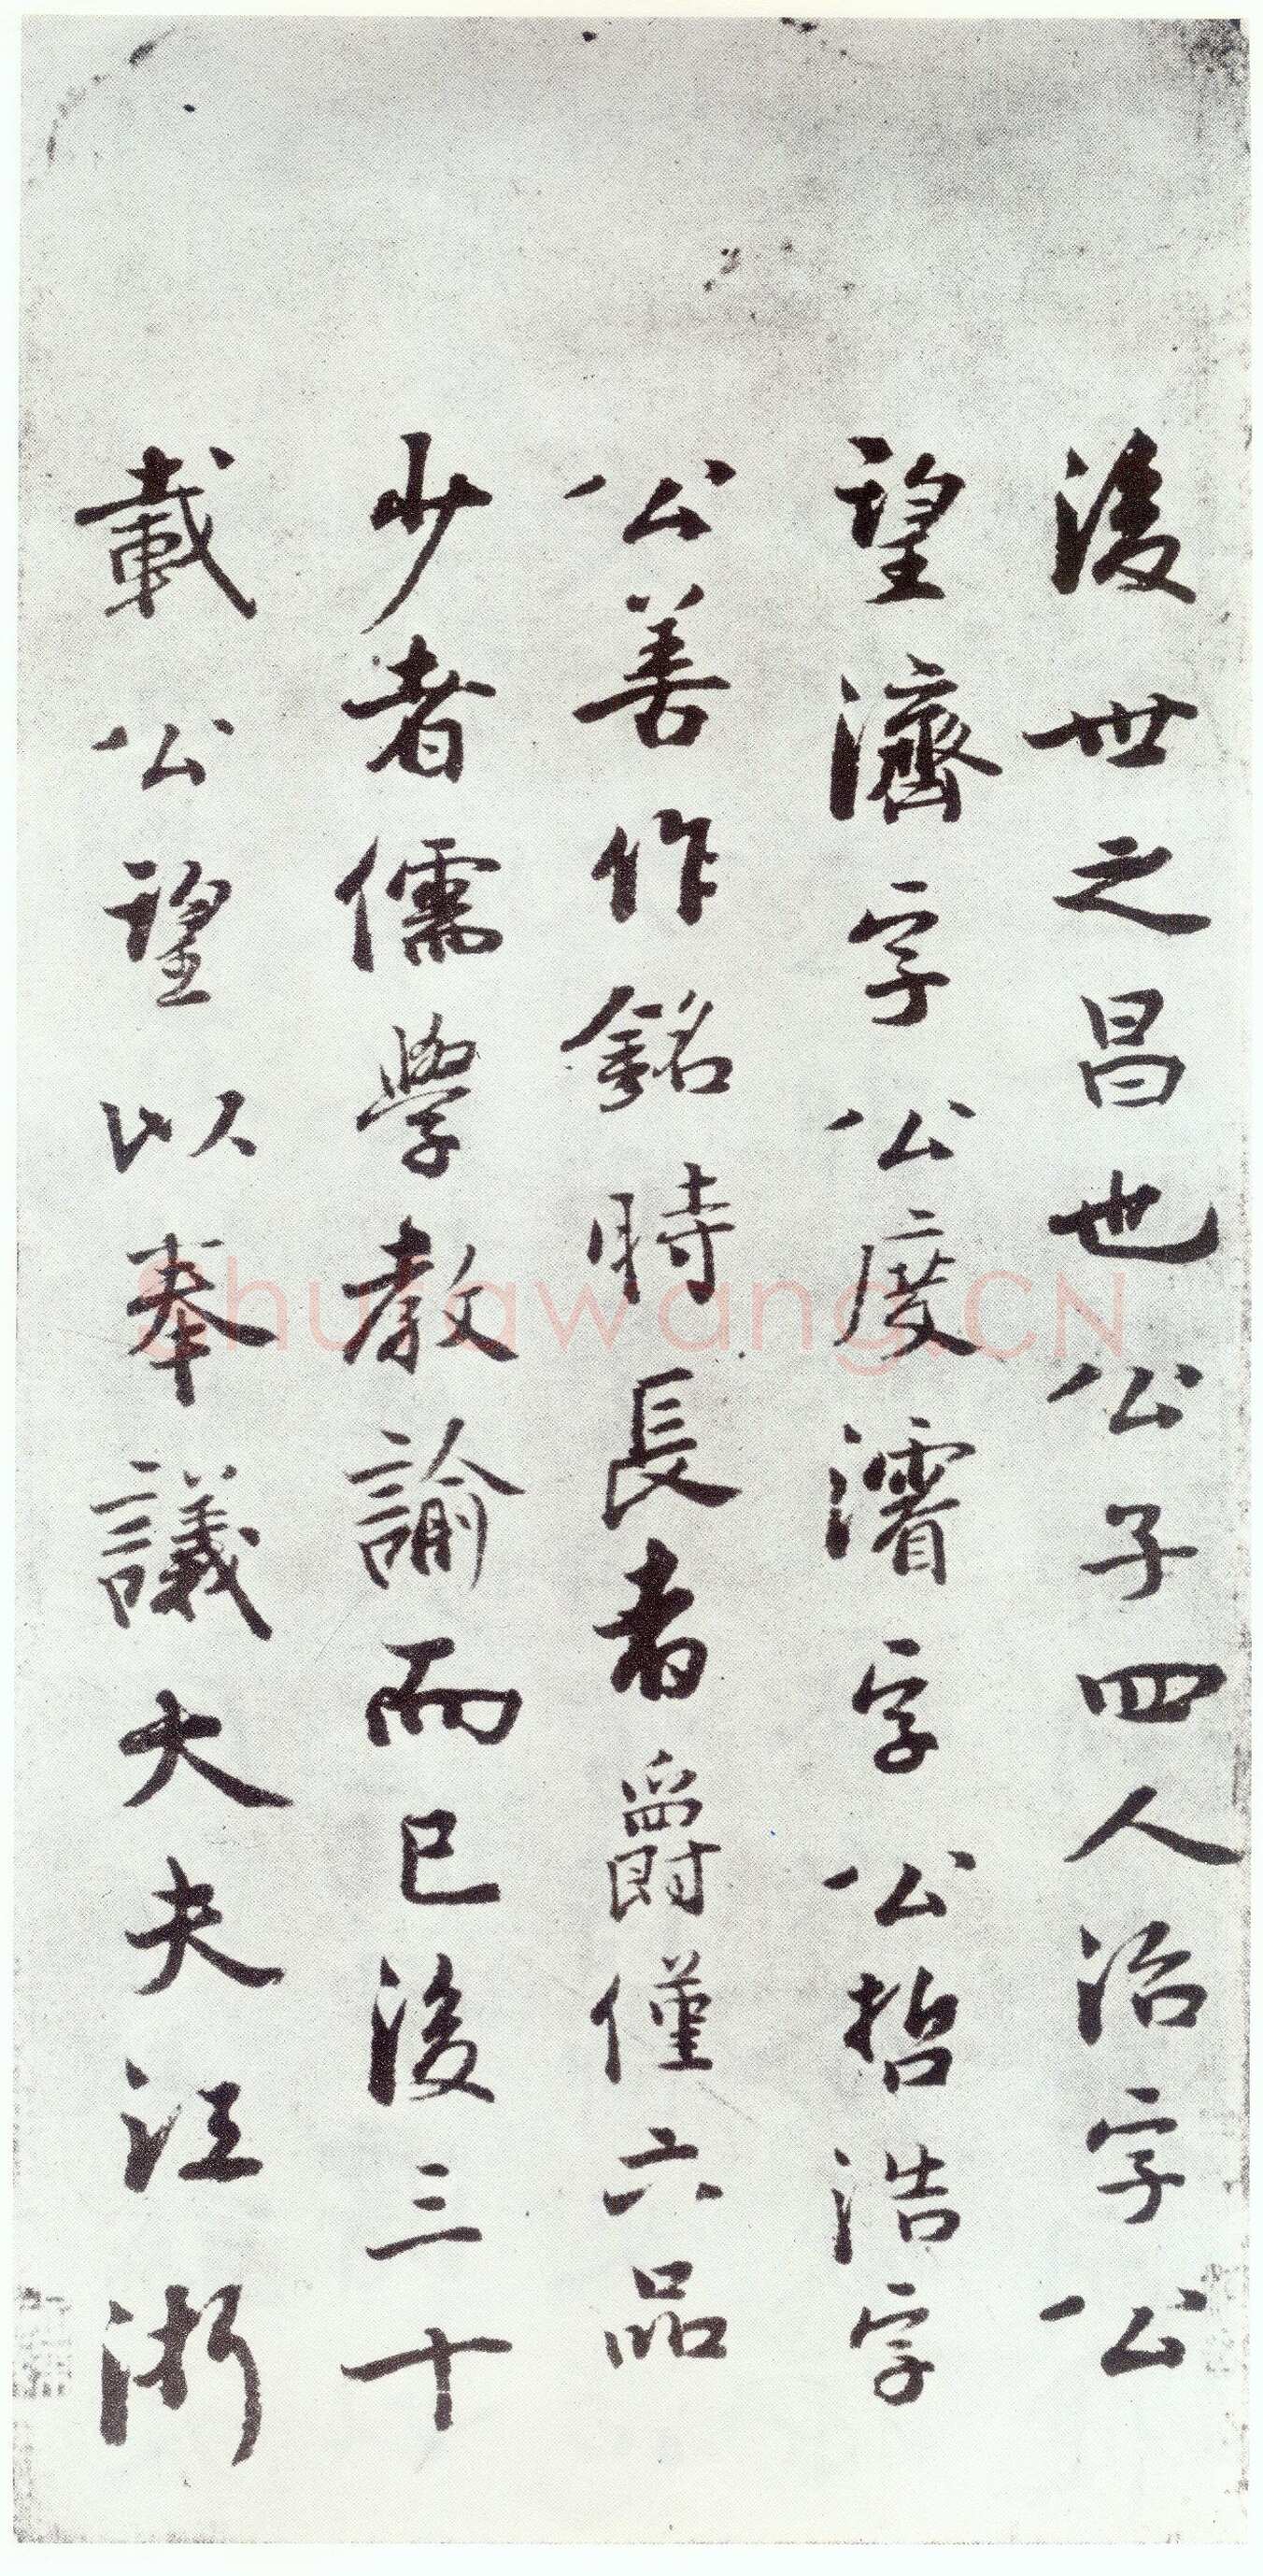 後世之昌也公子四人治字公
望濟字公度濬字公哲浩字
公善作銘時長者爵僅六品
少者儒學教諭而已後三十
載公望以奉議大夫江浙
Shufawang.CN